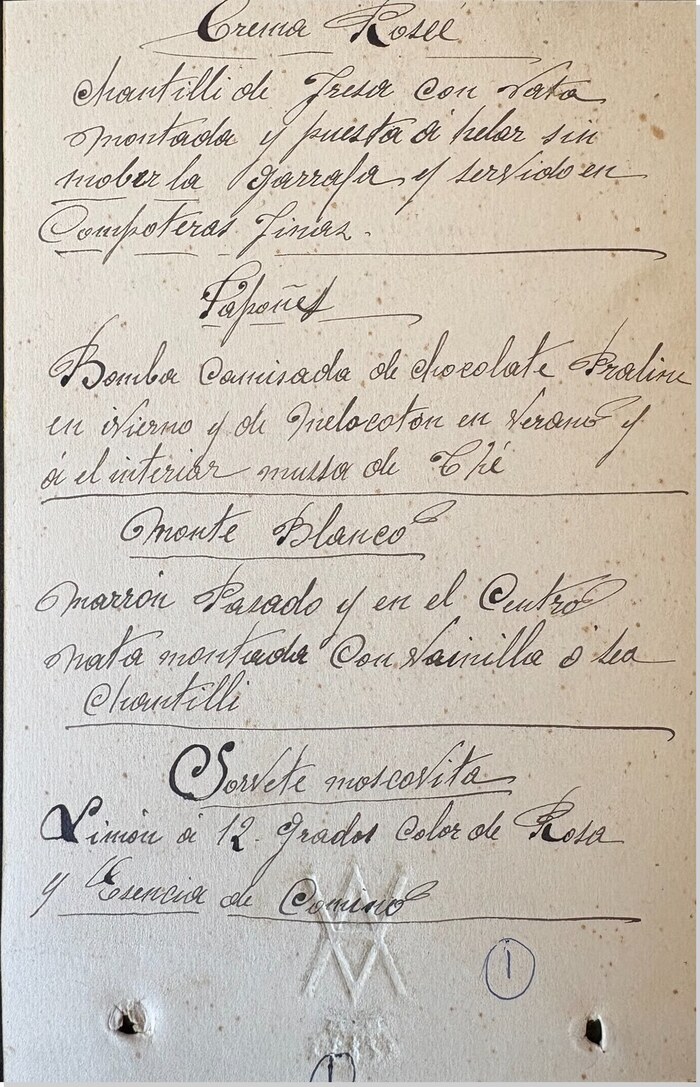 Crema Roseé
chantilli de Fresa con Nata
montada y puesta á helar sin
mober la garrafa y servido en
Compoteras finas.
Japoñes
Bomba Camisada de chocolate Praline
en ivierno y de Melocoton en verano y
á el interiar mussa de Thé
Monte Blanco
Marrón Pasado y en el Centro
nata montada Con Vainilla ó sea
Chantilli
Sorvete moscovita
Limón á 12. grados Color de Rosa
y Esencia de Comino
1
1